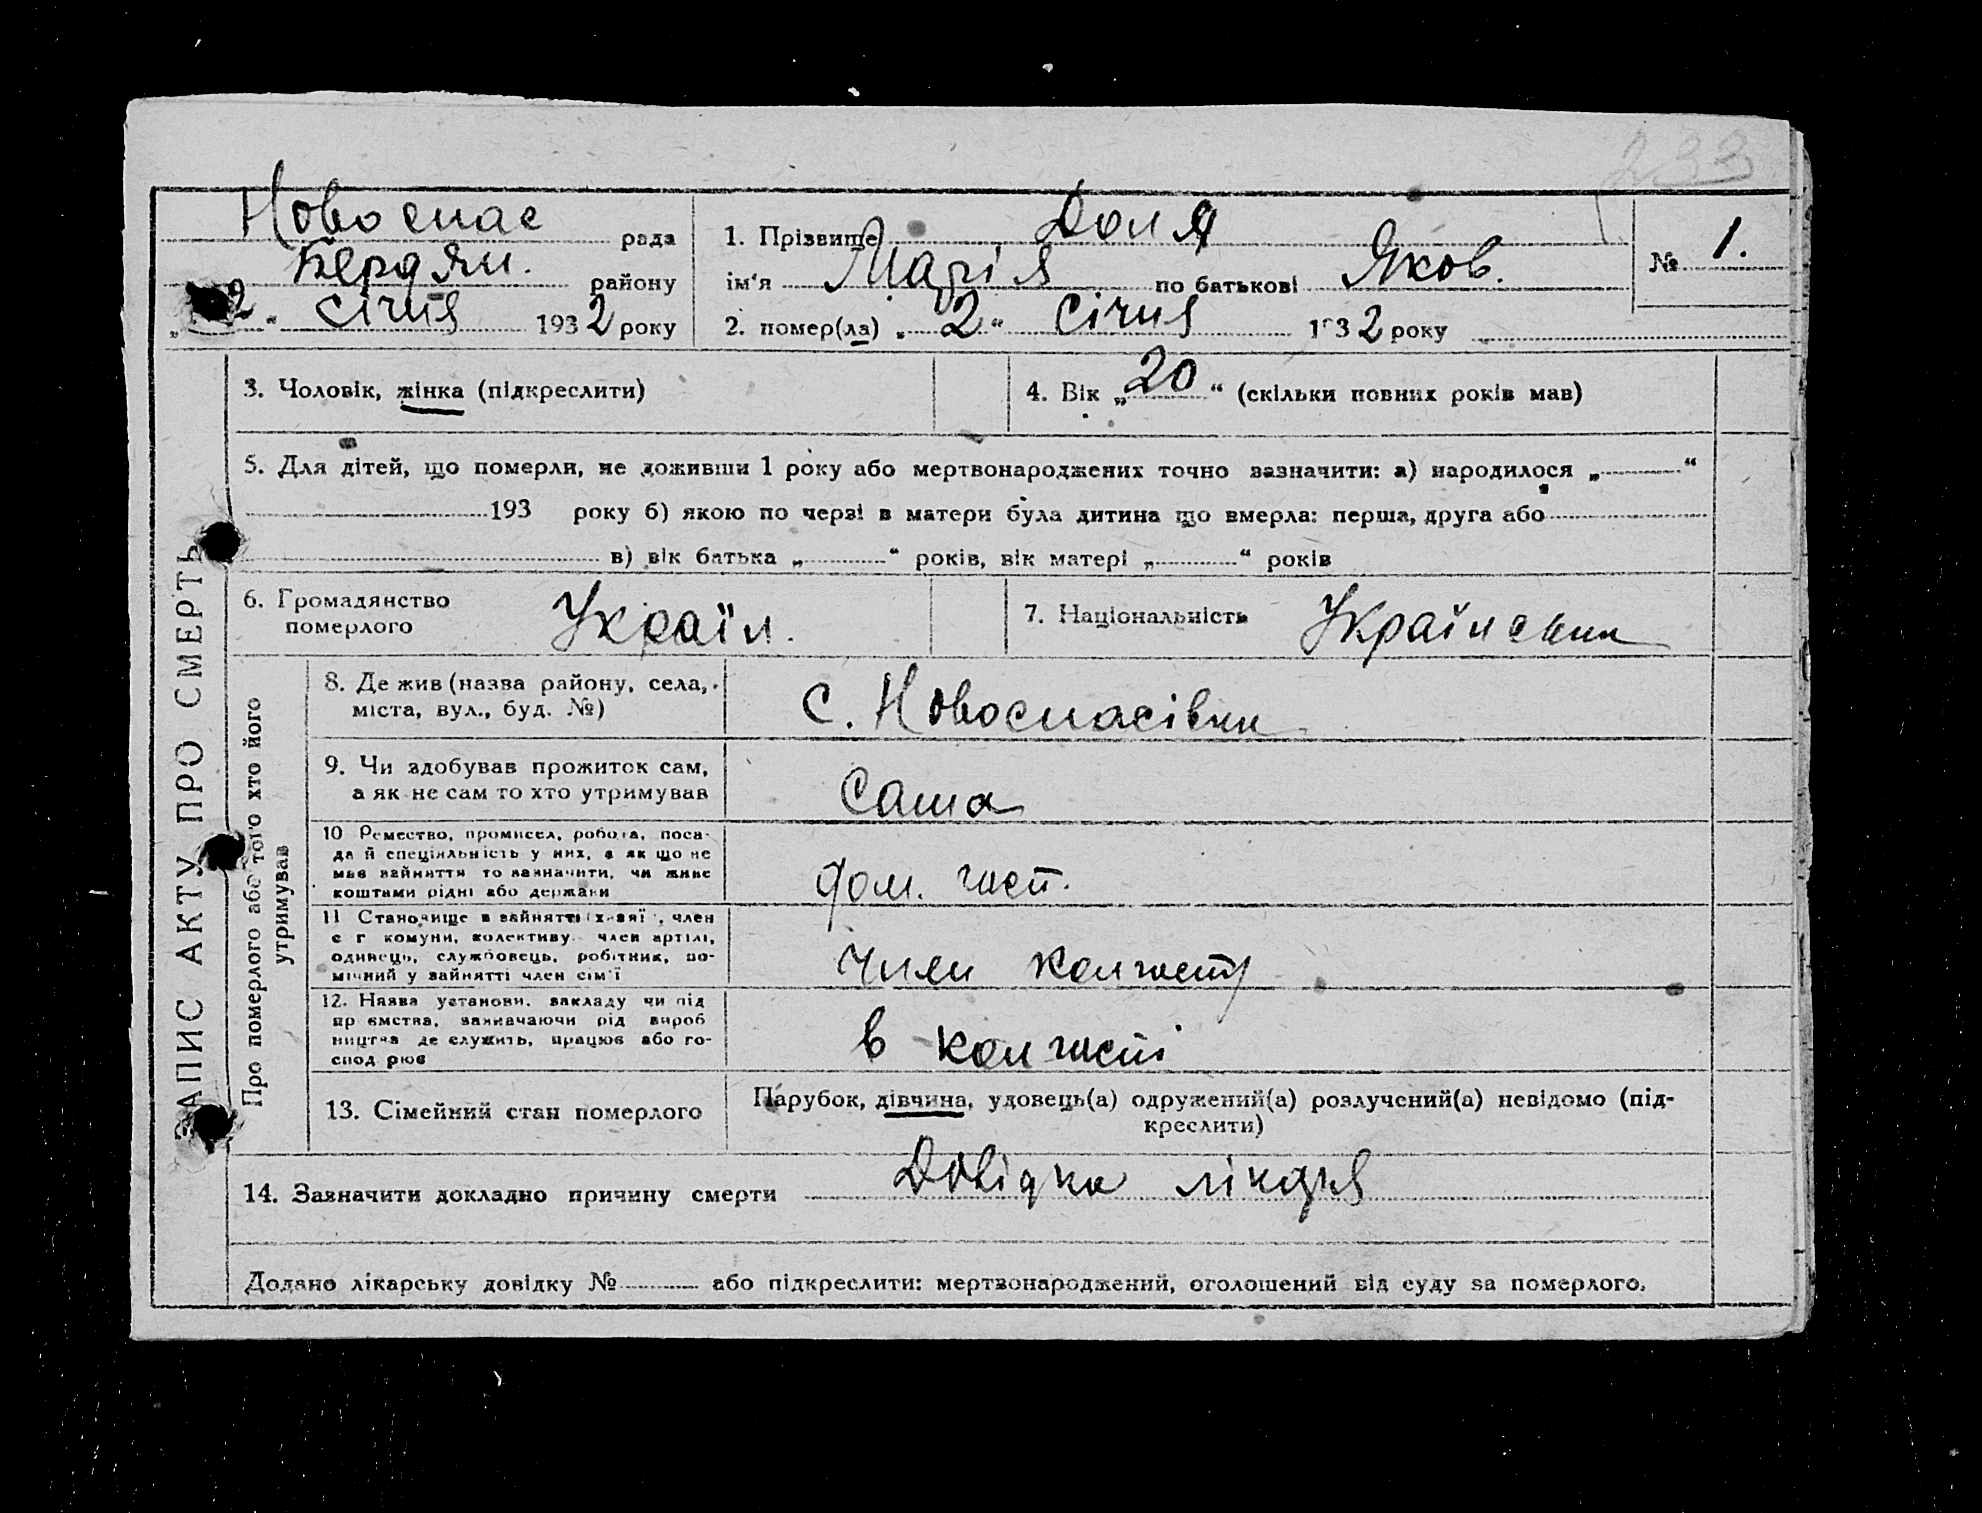 233
Новоспас рада
Бердян. району
„2“ січня 1932 року
1. Прізвище Доля
ім'я Марія по батькові Яков.
2. помер(ла) „2“ січня 1932 року
№ 1.
3. Чоловік, жінка (підкреслити)
4. Вік „20“ (скільки повних років мав)
5. Для дітей, що померли, не доживши 1 року або мертвонароджених точно зазначити: а) народилося „ “
193 року б) якою по черзі в матери була дитина що вмерла: перша, друга або
в) вік батька „ “ років, вік матері „ “ років
6. Громадянство
померлого Україн.
7. Національність Українськи
ЗАПИС АКТУ ПРО СМЕРТЬ
Про померлого або того хто його
утримував
8. Де жив (назва району, села,
міста, вул., буд. №) с. Новоспасівки
9. Чи здобував прожиток сам,
а як не сам то хто утримував Сама
10 Ремество, промисел, робота, поса-
да й спеціяльність у них, а як що не
мав зайняття то зазначити, чи живе
коштами рідні або держави дом. госп.
11 Становище в зайнятті (хазяї, член
с г комуни, колективу, член артілі,
одинець, службовець, робітник, по-
мічний у зайнятті член сім'ї член колгоспу
12. Назва установи, закладу чи під
пр ємства, зазначаючи рід вироб
ництва де служить, працює або го-
спод рює в колгоспі
13. Сімейний стан померлого
Парубок, дівчина, удовець(а) одружений(а) розлучений(а) невідомо (під-
креслити)
14. Зазначити докладно причину смерти Довідка лікаря
Додано лікарську довідку № або підкреслити: мертвонароджений, оголошений від суду за померлого.